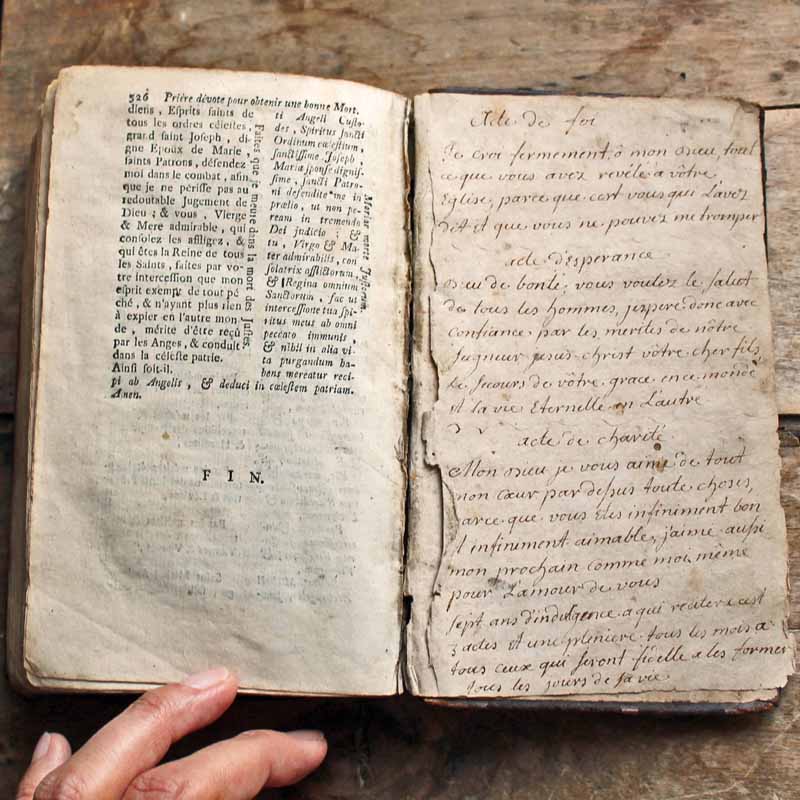 526 Prière dévote pour obtenir une bonne Mort.
diens, Esprits saints de
tous les ordres célestes,
grand saint Joseph, di-
gne Epoux de Marie,
saints Patrons, défendez
moi dans le combat, afin
que je ne périsse pas au
redoutable Jugement de
Dieu ; & vous, Vierge
& Mere admirable, qui
consolez les affligez, &
qui êtes la Reine de tous
les Saints, faites par vo-
tre intercession que mon
esprit exempt de tout pé
ché, & n'ayant plus rien
à expier en l'autre mon
de, mérite d'être reçû
par les Anges, & conduit
dans la céleste patrie.
Ainsi soit-il.
Faites que je meure dans la mort des Justes.
ti Angeli Custo-
des, Spiritus sancti
Ordinum cœlestium,
sanctissime Joseph,
Mariæ sponse dignis-
sime, sancti Patro-
ni defendite me in
prælio, ut non pe-
ream in tremendo
Dei judicio ; &
tu, Virgo & Ma-
ter admirabilis, con
solatrix afflictorum,
& Regina omnium
Sanctorum, fac ut
intercessione tua spi-
ritus meus ab omni
peccato immunis,
& nihil in alia vi-
ta purgandum ha-
bens mereatur reci-
pi ab Angelis, & deduci in cœlestem patriam.
Amen.
Moriar morte Justorum.
FIN.
Acte de foi
Je croi fermement, ô mon Dieu, tout
ce que vous avez revélé a vôtre
Eglise, parce que cest vous qui Lavez
dit et que vous ne pouvez me tromper
acte d'Esperance
Dieu de bonté, vous voulez le salut
de tous les hommes, jespere donc avec
confiance par les merites de nôtre
seigneur jesus christ vôtre cher fils,
Le secours de vôtre grace en ce monde
et la vie Eternelle en L'autre
acte de charité
Mon Dieu je vous aime de tout
mon cœur par dessus toute choses,
parce que vous etes infiniment bon
et infiniment aimable, j'aime aussi
mon prochain comme moi même
pour L'amour de vous
sept ans d'indulgence a qui recitera cest
3 actes et une pleniere tous les mois a
tous ceux qui seront fidelle a les former
tous les jours de sa vie